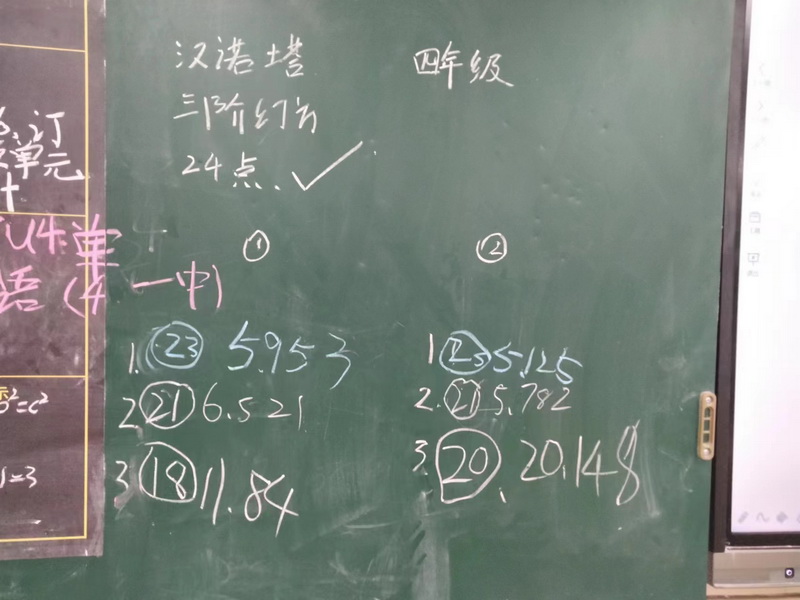 汉诺塔
三阶幻方
24点 ✓
四年级
订
单元
U4单
语 (4 一中)
² = c²
1=3
①
1. ㉓ 5.953
2 ㉑ 6.521
3 ⑱ 11.84
②
1 ㉓ 5.125
2. ㉑ 5.782
3. ⑳ 20.148